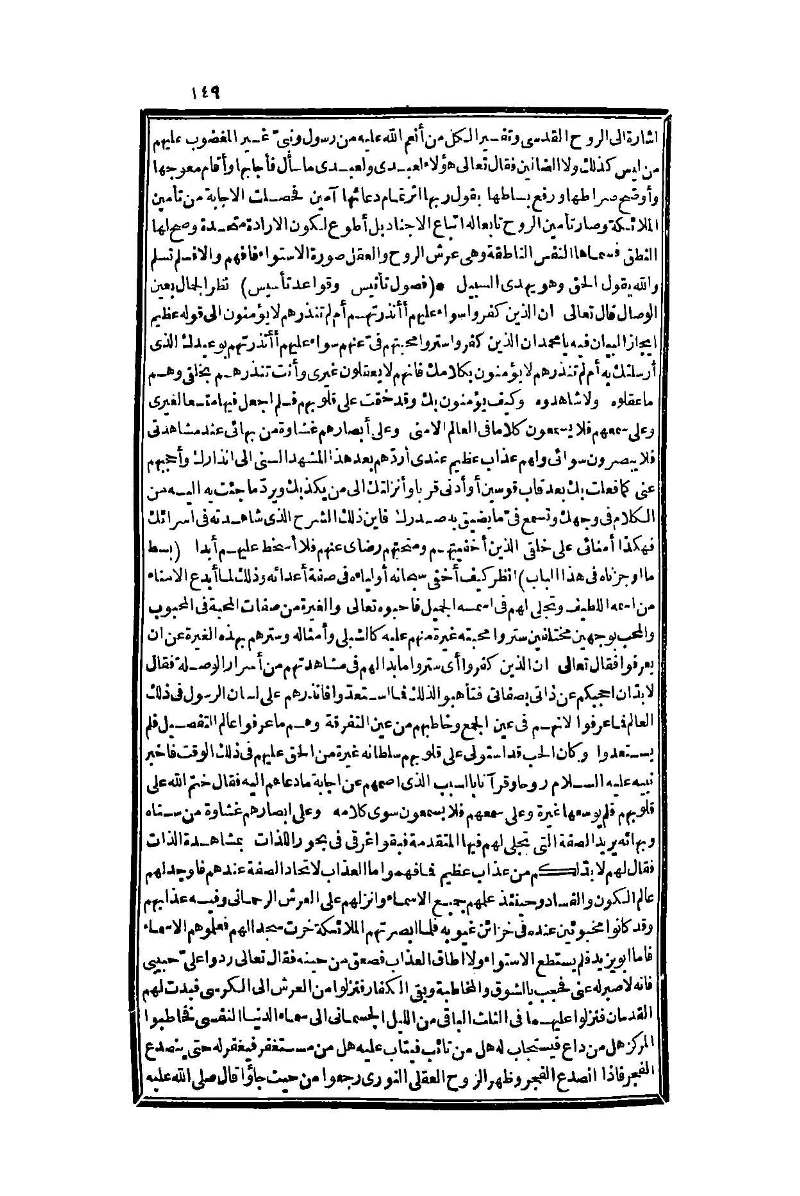 ١٤٩
اشارة الى الروح القدسى وتفسير الكل من أنعم الله عليه من رسول ونبى غير المغضوب عليهم
من ليس كذلك ولا الضالين فقال تعالى هؤلاء لعبدى ولعبدى ما سأل فأجابها وأقام معوجها
وأوضح صراطها ورفع بساطها بقول ربها اثر تمام دعائها آمين فحصلت الاجابة من تأمين
الملائكة وصار تأمين الروح تابعا له اتباع الاجناد بل أطوع لكون الارادة متحدة وصح لها
النطق فسماها النفس الناطقة وهى عرش الروح والعقل صورة الاستواء فافهم والا فسلم تسلم
والله يقول الحق وهو يهدى السبيل *(فصول تأنيس وقواعد تأسيس) نظر الجمال بعين
الوصال قال تعالى ان الذين كفروا سواء عليهم أأنذرتهم أم لم تنذرهم لا يؤمنون الى قوله عظيم
ايجاز البيان فيه يا محمد ان الذين كفروا ستروا محبتهم فى عنهم سواء عليهم أأنذرتهم بوعيدك الذى
أرسلتك به أم لم تنذرهم لا يؤمنون بكلامك فانهم لا يعقلون غيرى وأنت تنذرهم بخلقى وهم
ما عقلوه ولا شاهدوه وكيف يؤمنون بك وقد ختمت على قلوبهم فلم اجعل فيها متسعا لغيرى
وعلى سمعهم فلا يسمعون كلاما فى العالم الا منى وعلى أبصارهم غشاوة من بهائى عند مشاهدتى
فلا يبصرون سوائى ولهم عذاب عظيم عندى أردهم بعد هذا المشهد السنى الى انذارك وأحجبهم
عنى كما فعلت بك بعد قاب قوسين أو أدنى قربا وأنزلتك الى من يكذبك ويرد ما جئت به اليه من
الكلام فى وجهك وتسمع فى ما يضيق به صدرك فاين ذلك الشرح الذى شاهدته فى اسرائك
فهكذا أمنائى على خلقى الذين أخفيتهم ومنحتهم رضاى عنهم فلا أسخط عليهم أبدا (بسط
ما أوجزناه فى هذا الباب) انظر كيف أخفى سبحانه أولياءه فى صفة أعدائه وذلك لما أبدع الامناء
من اسمه اللطيف وتجلى لهم فى اسمه الجميل فاحبوه تعالى والغيرة من صفات المحبة فى المحبوب
والمحب بوجهين مختلفين ستروا محبته غيرة منهم عليه كالشبلى وأمثاله وسترهم بهذه الغيرة عن ان
يعرفوا فقال تعالى ان الذين كفروا أى ستروا ما بدا لهم فى مشاهدتهم من أسرار الوصلة فقال
لا بد ان احجبكم عن ذاتى بصفاتى فتأهبوا لذلك فما استعدوا فانذرهم على لسان الرسول فى ذلك
العالم فما عرفوا لانهم فى عين الجمع وخاطبهم من عين التفرقة وهم ما عرفوا عالم التفصيل فلم
يستعدوا وكان الحب قد استولى على قلوبهم سلطانه غيرة من الحق عليهم فى ذلك الوقت فاخبر
نبيه عليه السلام روحا وقرآنا بالسبب الذى اصمهم عن اجابة ما دعاهم اليه فقال ختم الله على
قلوبهم فلم يوسعها غيرة وعلى سمعهم فلا يسمعون سوى كلامه وعلى ابصارهم غشاوة من سناه
وبهائه يريد الصفة التى تجلى لهم فيها المتقدمة فبقوا غرقى فى بحور اللذات بمشاهدة الذات
فقال لهم لا بد لكم من عذاب عظيم فما فهموا ما العذاب لاتحاد الصفة عندهم فاوجد لهم
عالم الكون والفساد وحينئذ علمهم جميع الاسماء وانزلهم على العرش الرحمانى وفيه عذابهم
وقد كانوا مخبوئين عنده فى خزائن غيوبه فلما ابصرتهم الملائكة خرت سجدا لهم فعلموهم الاسماء
فاما ابو يزيد فلم يستطع الاستواء ولا اطاق العذاب فصعق من حينه فقال تعالى ردوا على حبيبى
فانه لا صبر له عنى فحجب بالشوق والمخاطبة وبقى الكفار فنزلوا من العرش الى الكرسى فبدت لهم
القدمان فنزلوا عليهما فى الثلث الباقى من الليل الجسمانى الى سماء الدنيا النفسى فخاطبوا
المركز هل من داع فيستجاب له هل من تائب فيتاب عليه هل من مستغفر فيغفر له حتى ينصدع
الفجر فاذا انصدع الفجر وظهر الروح العقلى النورى رجعوا من حيث جاؤا قال صلى الله عليه